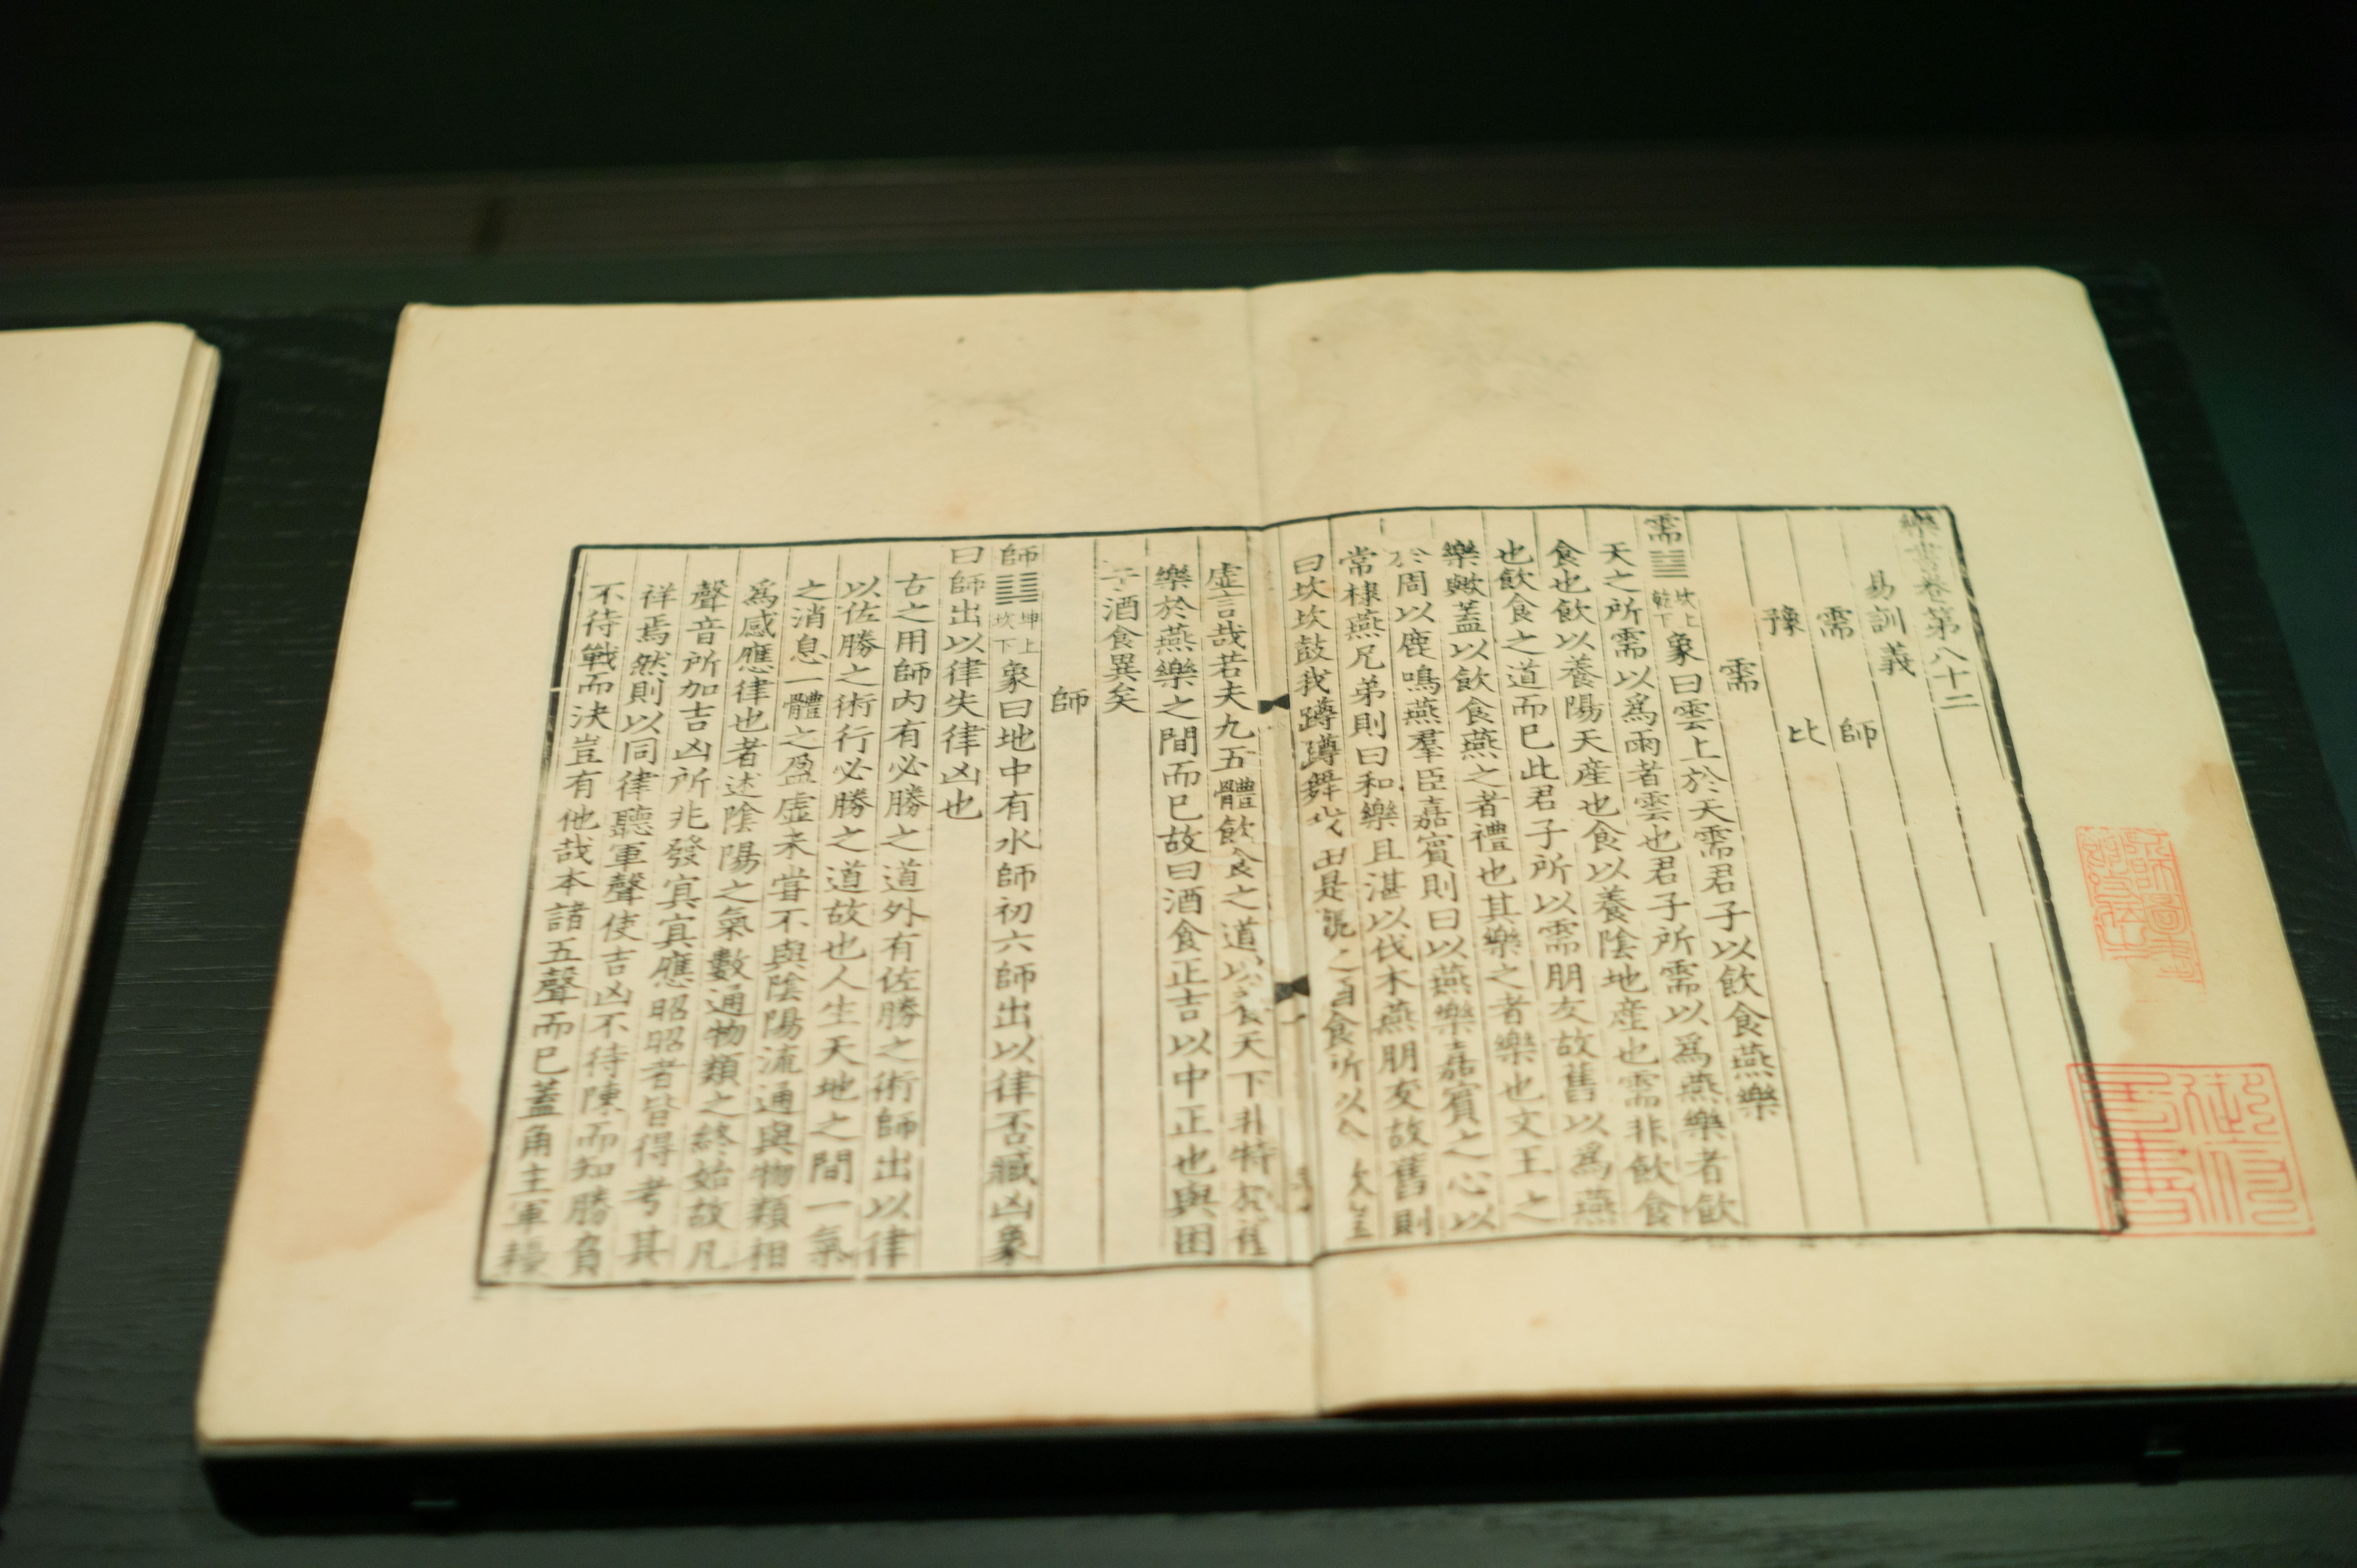 樂書卷第八十二
易訓義
需　師
豫　比
需
需 坎上乾下 象曰雲上於天需君子以飲食燕樂
天之所需以爲雨者雲也君子所需以爲燕樂者飲
食也飲以養陽天産也食以養陰地産也需非飲食
也飲食之道而已此君子所以需朋友故舊以爲燕
樂歟蓋以飲食燕之者禮也其樂之者樂也文王之
於周以鹿鳴燕羣臣嘉賓則曰以燕樂嘉賓之心以
常棣燕兄弟則曰和樂且湛以伐木燕朋友故舊則
曰坎坎鼓我蹲蹲舞我由是觀之酒食所以
虚言哉若夫九五體飲食之道以養天下非特
樂於燕樂之間而已故曰酒食正吉以中正也與困
于酒食異矣
師
師 坤上坎下 象曰地中有水師初六師出以律否臧凶象
曰師出以律失律凶也
古之用師内有必勝之道外有佐勝之術師出以律
以佐勝之術行必勝之道故也人生天地之間一氣
之消息一體之盈虚未甞不與陰陽流通與物類相
爲感應律也者述陰陽之氣數通物類之終始故凡
聲音所加吉凶所兆發寘寘應昭昭者皆得考其
祥焉然則以同律聽軍聲使吉凶不待陳而知勝負
不待戰而決豈有他哉本諸五聲而已蓋角主軍擾